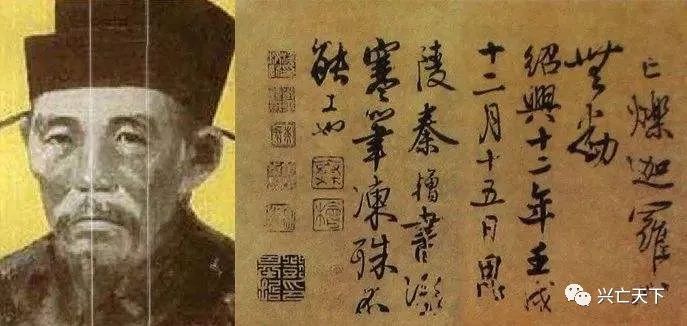 亡爍迦羅心
無動
紹興十二年壬戌
十二月十五日
陵秦檜書深
寒筆凍殊不
能工也
兴亡天下